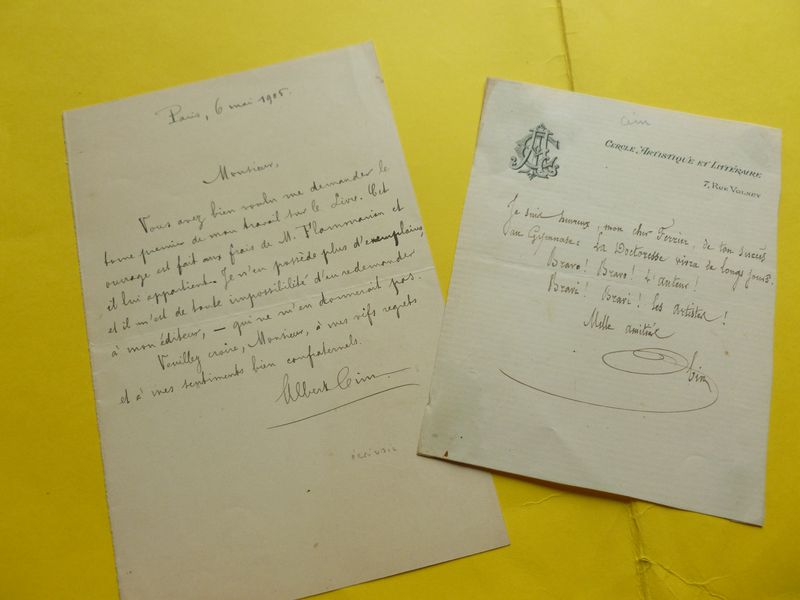 Paris, 6 mai 1905.
Monsieur,
Vous avez bien voulu me demander le
tome premier de mon travail sur le Livre. Cet
ouvrage est fait aux frais de M. Flammarion et
il lui appartient. Je n'en possède plus d'exemplaire,
et il m'est de toute impossibilité d'en redemander
à mon éditeur, — qui ne m'en donnerait pas.
Veuillez croire, Monsieur, à mes vifs regrets
et à mes sentiments bien confraternels.
Albert Cim.
écrivain
Cim
CERCLE ARTISTIQUE ET LITTÉRAIRE
7, RUE VOLNEY
Je suis heureux, mon cher Ferrier, de ton succès
au Gymnase: La Doctoresse vivra de longs jours.
Bravo! Bravo! L'auteur!
Bravi! Bravi! les artistes!
Mille amitiés
Cim